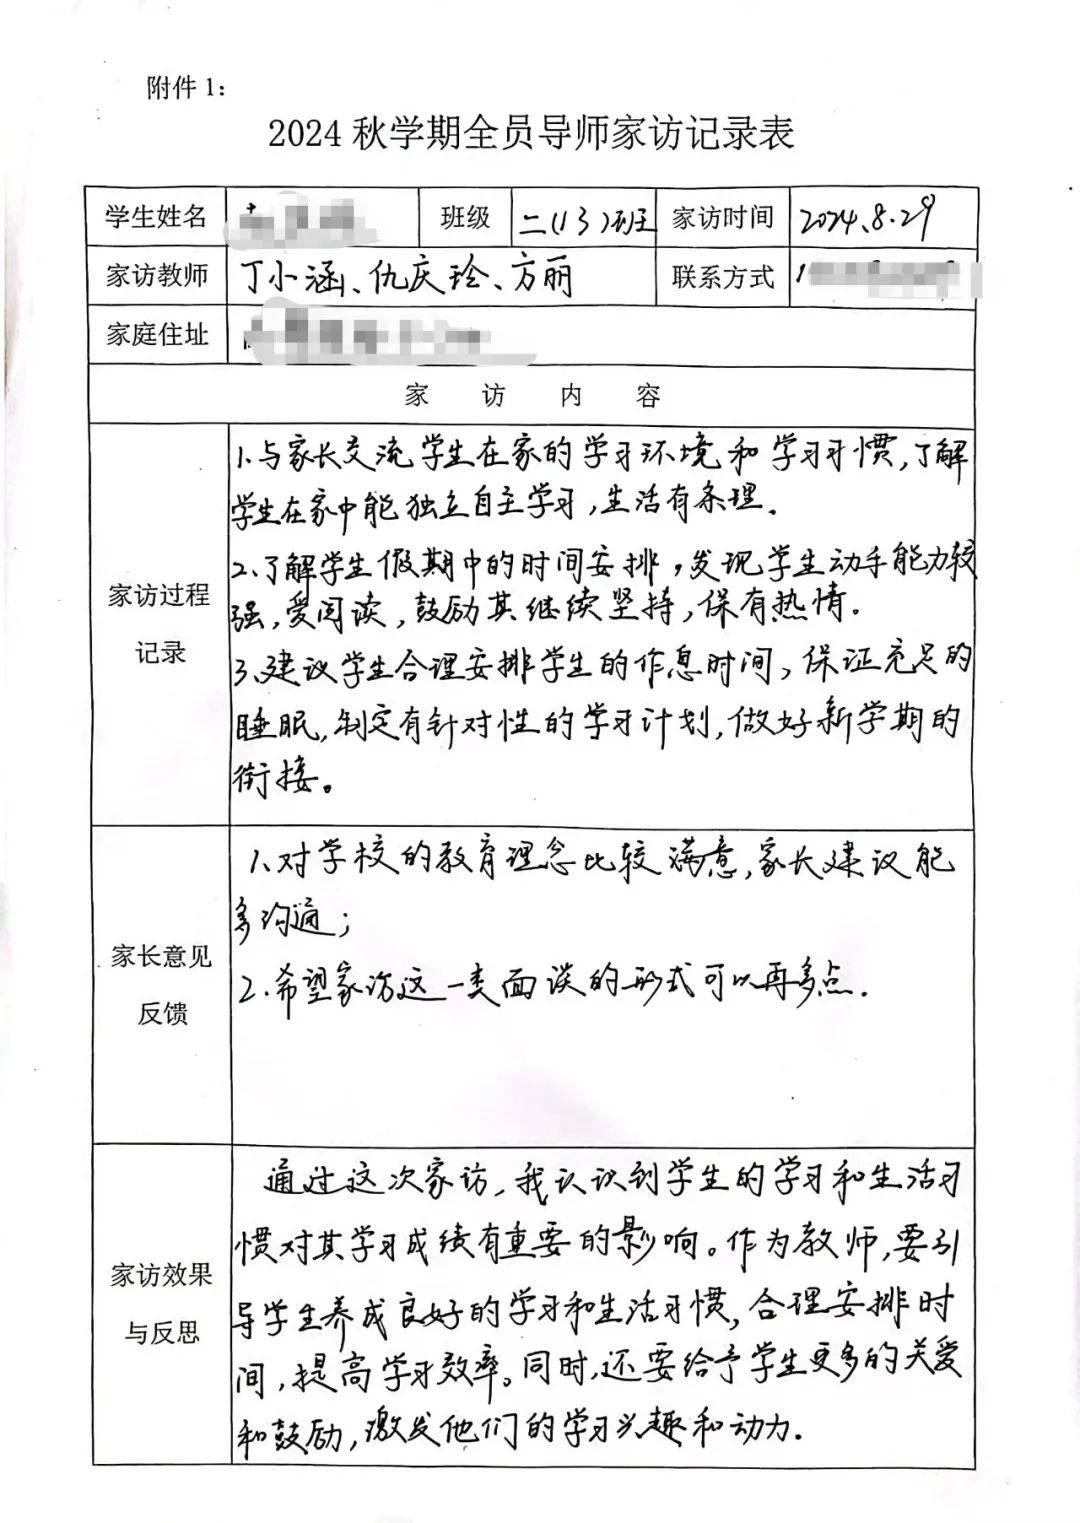 附件1：
2024秋学期全员导师家访记录表
学生姓名 班级 二(13)班 家访时间 2024.8.29
家访教师 丁小涵、仇庆玲、方丽 联系方式
家庭住址
家访内容
家访过程
记录
1.与家长交流学生在家的学习环境和学习习惯,了解
学生在家中能独立自主学习,生活有条理.
2.了解学生假期中的时间安排,发现学生动手能力较
强,爱阅读,鼓励其继续坚持,保有热情.
3.建议学生合理安排学生的作息时间,保证充足的
睡眠,制定有针对性的学习计划,做好新学期的
衔接。
家长意见
反馈
1.对学校的教育理念比较满意,家长建议能
多沟通;
2.希望家访这一类面谈的形式可以再多点.
家访效果
与反思
通过这次家访,我认识到学生的学习和生活习
惯对其学习成绩有重要的影响。作为教师,要引
导学生养成良好的学习和生活习惯,合理安排时
间,提高学习效率。同时,还要给予学生更多的关爱
和鼓励,激发他们的学习兴趣和动力.